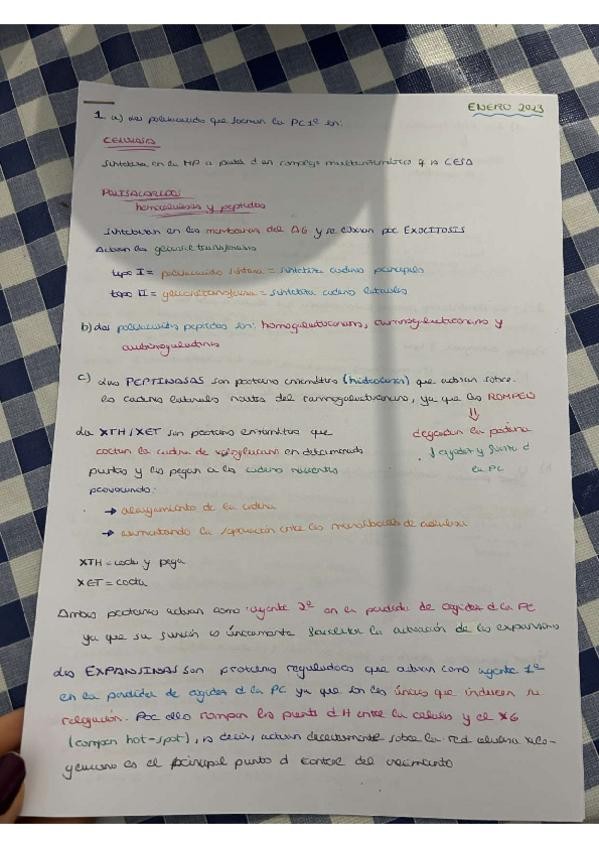 ENERO 2023
1. a) Los polisacáridos que forman la PC 1ª son:
CELULOSA
Sintetiza en la MP a partir d un complejo multienzimático q es CESA
POLISACÁRIDOS
hemicelulosas y pépticos
Sintetizan en las membranas del AG y se liberan por EXOCITOSIS
Actúan las glicosil transferasas
tipo I = polisacárido sintasa = sintetiza cadena principales
tipo II = glicosiltransferasa = sintetiza cadena laterales
b) Los polisacáridos pépticos son: homogalacturonano, ramnogalacturonano y
arabinogalactano
c) Las PECTINASAS son proteínas enzimáticas (hidrolasas) que actúan sobre
las cadenas laterales del ramnogalacturonano, ya que las ROMPEN
⇓
degradan la pectina
y rigidez d
la PC
La XTH/XET son proteínas enzimáticas que
cortan la cadena de xiloglucano en determinado
puntos y las pegan a las cadena nacientes
provocando:
→ alargamiento de la cadena
→ aumentando la separación entre las microfibrillas de celulosa
XTH = corta y pega
XET = corta
Ambas proteínas actúan como agente 2º en la pérdida de rigidez d la PC
ya que su función es únicamente facilitar la actuación de las expansinas
Las EXPANSINAS son proteínas reguladoras que actúan como agente 1º
en la pérdida de rigidez d la PC ya que son las únicas que inducen su
relajación. Por ello rompen los puente d H entre la celulosa y el XG
(rompen hot-spot), es decir, actúan directamente sobre la red celulosa xilo-
glucano es el principal punto d control del crecimiento